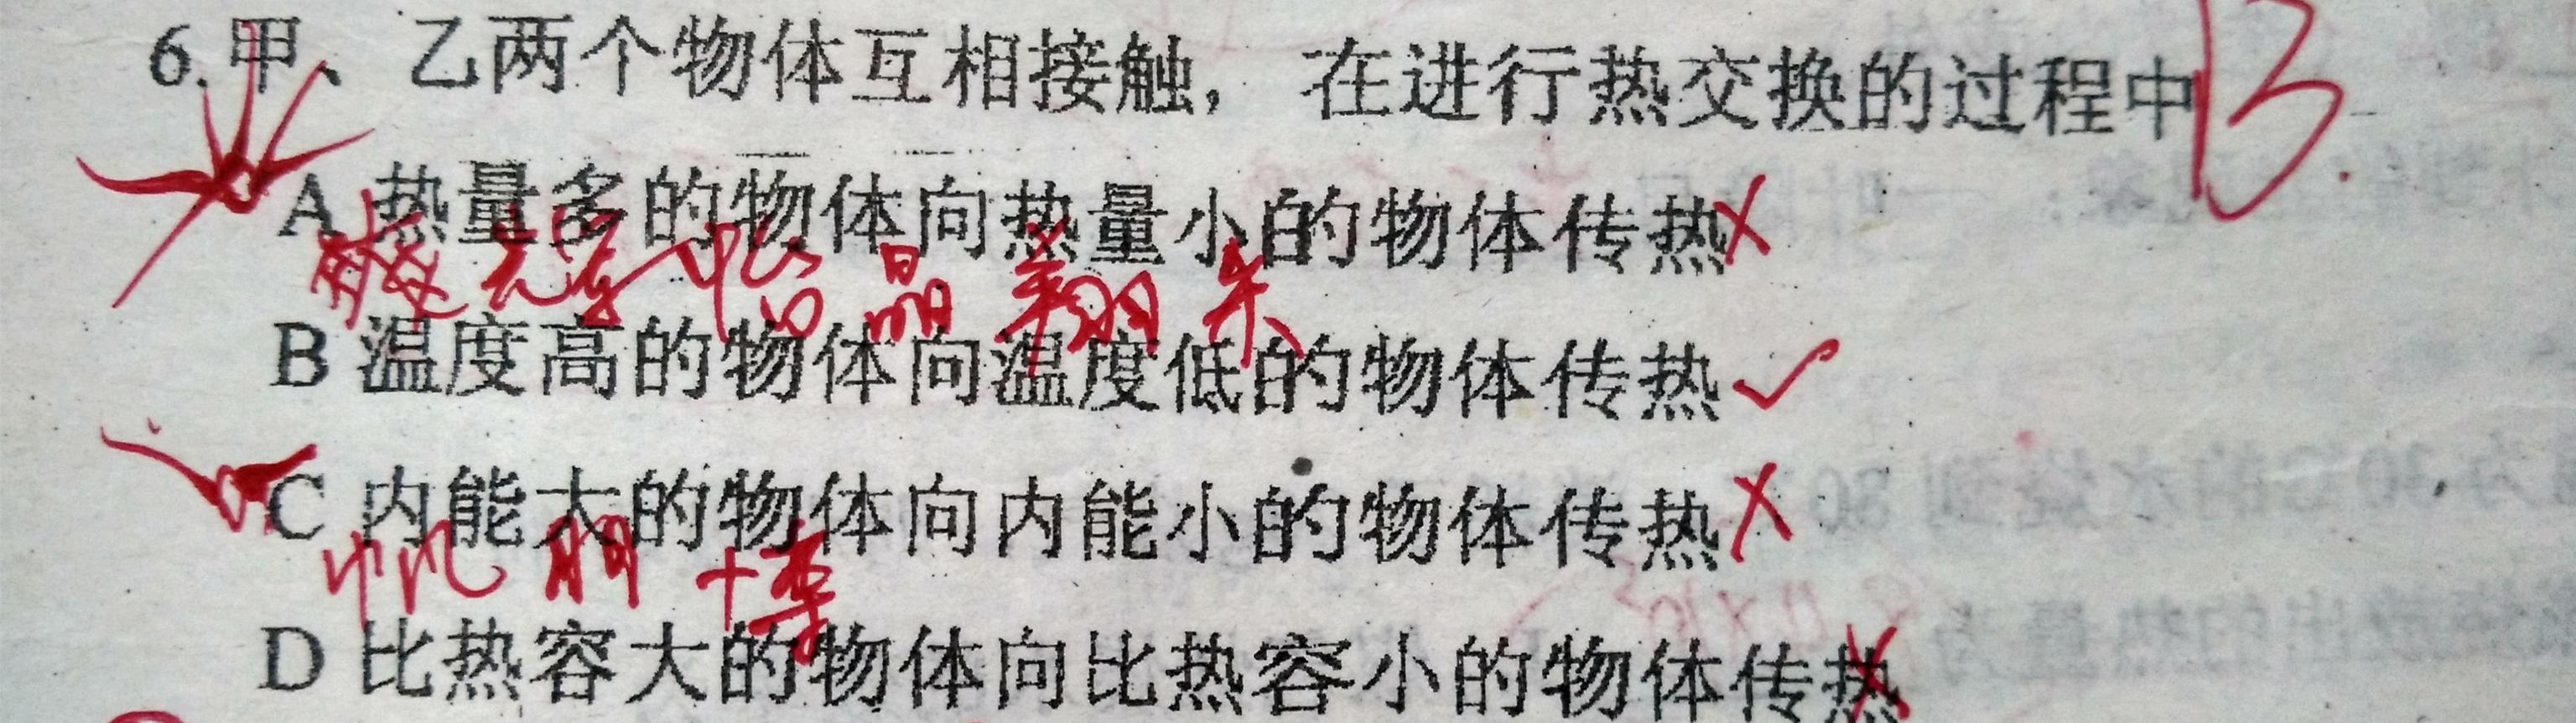 6.甲、乙两个物体互相接触，在进行热交换的过程中 B.
A 热量多的物体向热量小的物体传热 ×
B 温度高的物体向温度低的物体传热 ✓
C 内能大的物体向内能小的物体传热 ×
D 比热容大的物体向比热容小的物体传热 ×